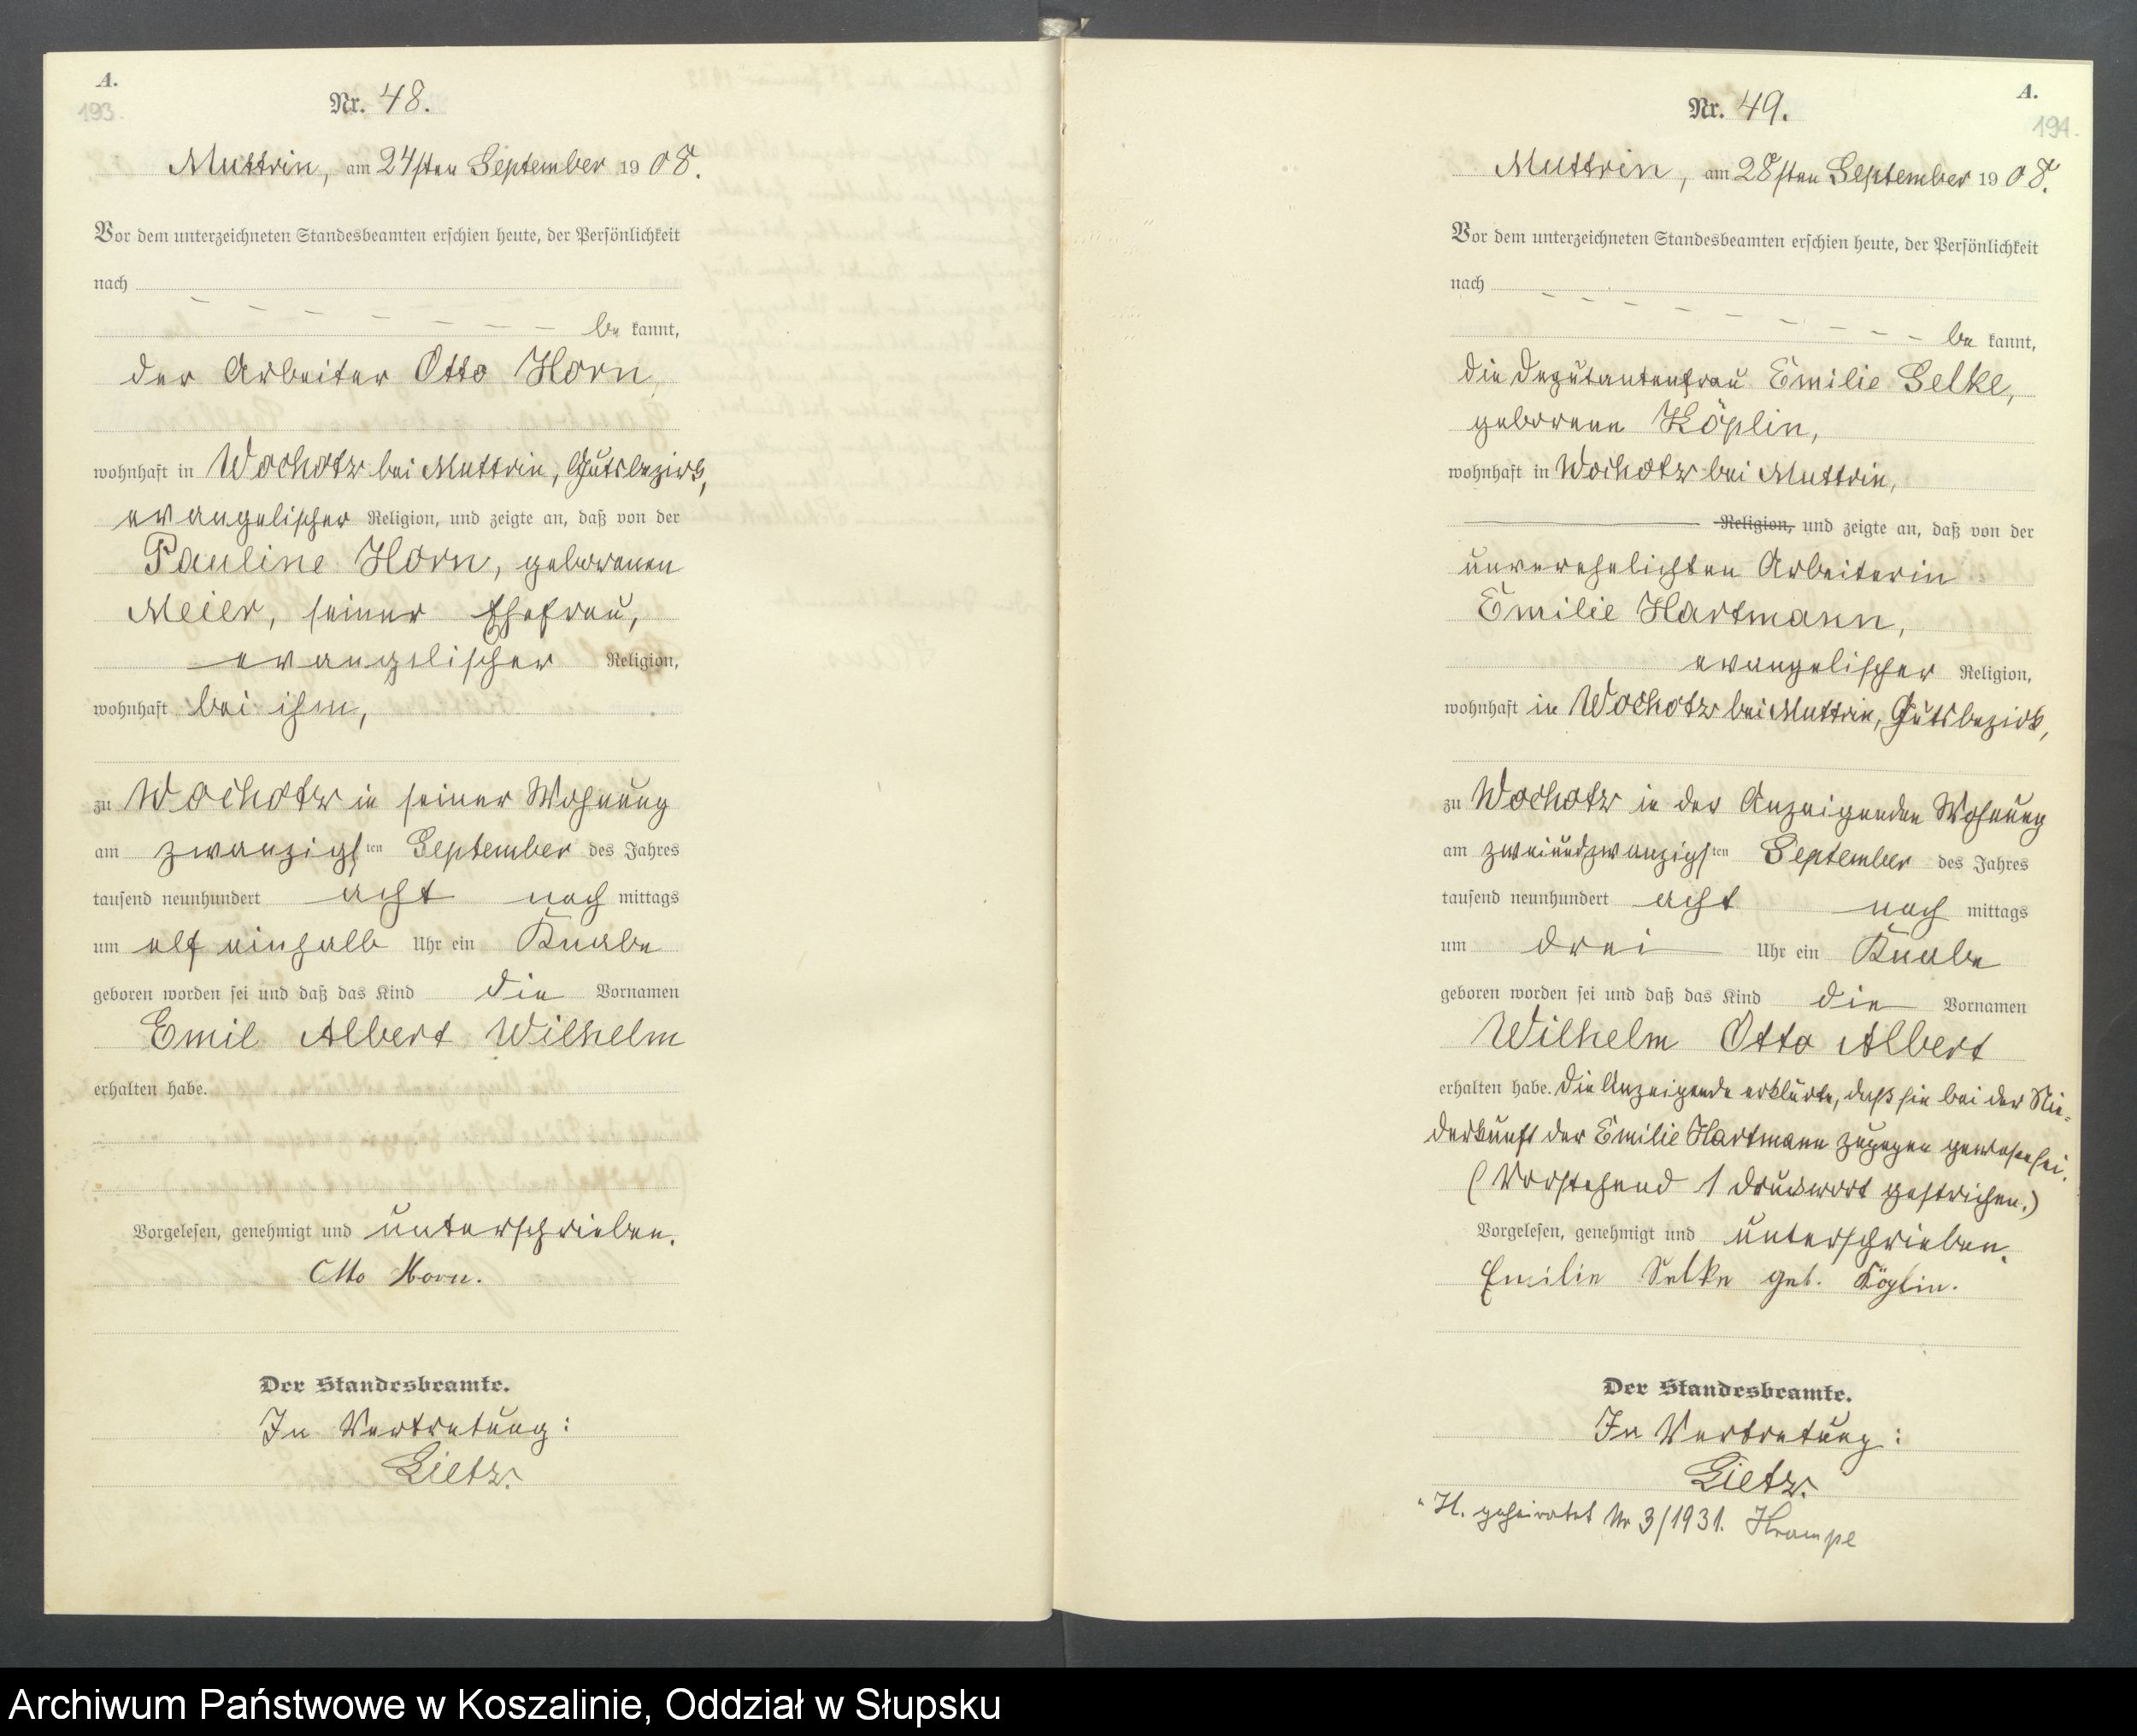 A.
193.
Nr. 48.
Muttrin, am 24sten September 1908.
Vor dem unterzeichneten Standesbeamten erschien heute, der Persönlichkeit
nach
be kannt,
der Arbeiter Otto Horn,
wohnhaft in Wochotz bei Muttrin, Gutsbezirk,
evangelischer Religion, und zeigte an, daß von der
Pauline Horn, geborenen
Meier, seiner Ehefrau,
evangelischer Religion,
wohnhaft bei ihm,
zu Wochotz in seiner Wohnung
am zwanzigsten September des Jahres
tausend neunhundert acht nach mittags
um elf einhalb Uhr ein Knabe
geboren worden sei und daß das Kind die Vornamen
Emil Albert Wilhelm
erhalten habe.
Vorgelesen, genehmigt und unterschrieben.
Otto Horn.
Der Standesbeamte.
In Vertretung:
Lietz.
A.
194.
Nr. 49.
Muttrin, am 28sten September 1908.
Vor dem unterzeichneten Standesbeamten erschien heute, der Persönlichkeit
nach
be kannt,
die Deputantenfrau Emilie Selke,
geborene Köplin,
wohnhaft in Wochotz bei Muttrin,
Religion, und zeigte an, daß von der
unverehelichten Arbeiterin
Emilie Hartmann,
evangelischer Religion,
wohnhaft in Wochotz bei Muttrin, Gutsbezirk,
zu Wochotz in der Anzeigenden Wohnung
am zweiundzwanzigsten September des Jahres
tausend neunhundert acht nach mittags
um drei Uhr ein Knabe
geboren worden sei und daß das Kind die Vornamen
Wilhelm Otto Albert
erhalten habe. Die Anzeigende erklärte, daß sie bei der Nie-
derkunft der Emilie Hartmann zugegen gewesen sei.
(Vorstehend 1 Druckwort gestrichen.)
Vorgelesen, genehmigt und unterschrieben.
Emilie Selke geb. Köplin.
Der Standesbeamte.
In Vertretung:
Lietz.
H. geheiratet Nr 3/1931. Krampe
Archiwum Państwowe w Koszalinie, Oddział w Słupsku